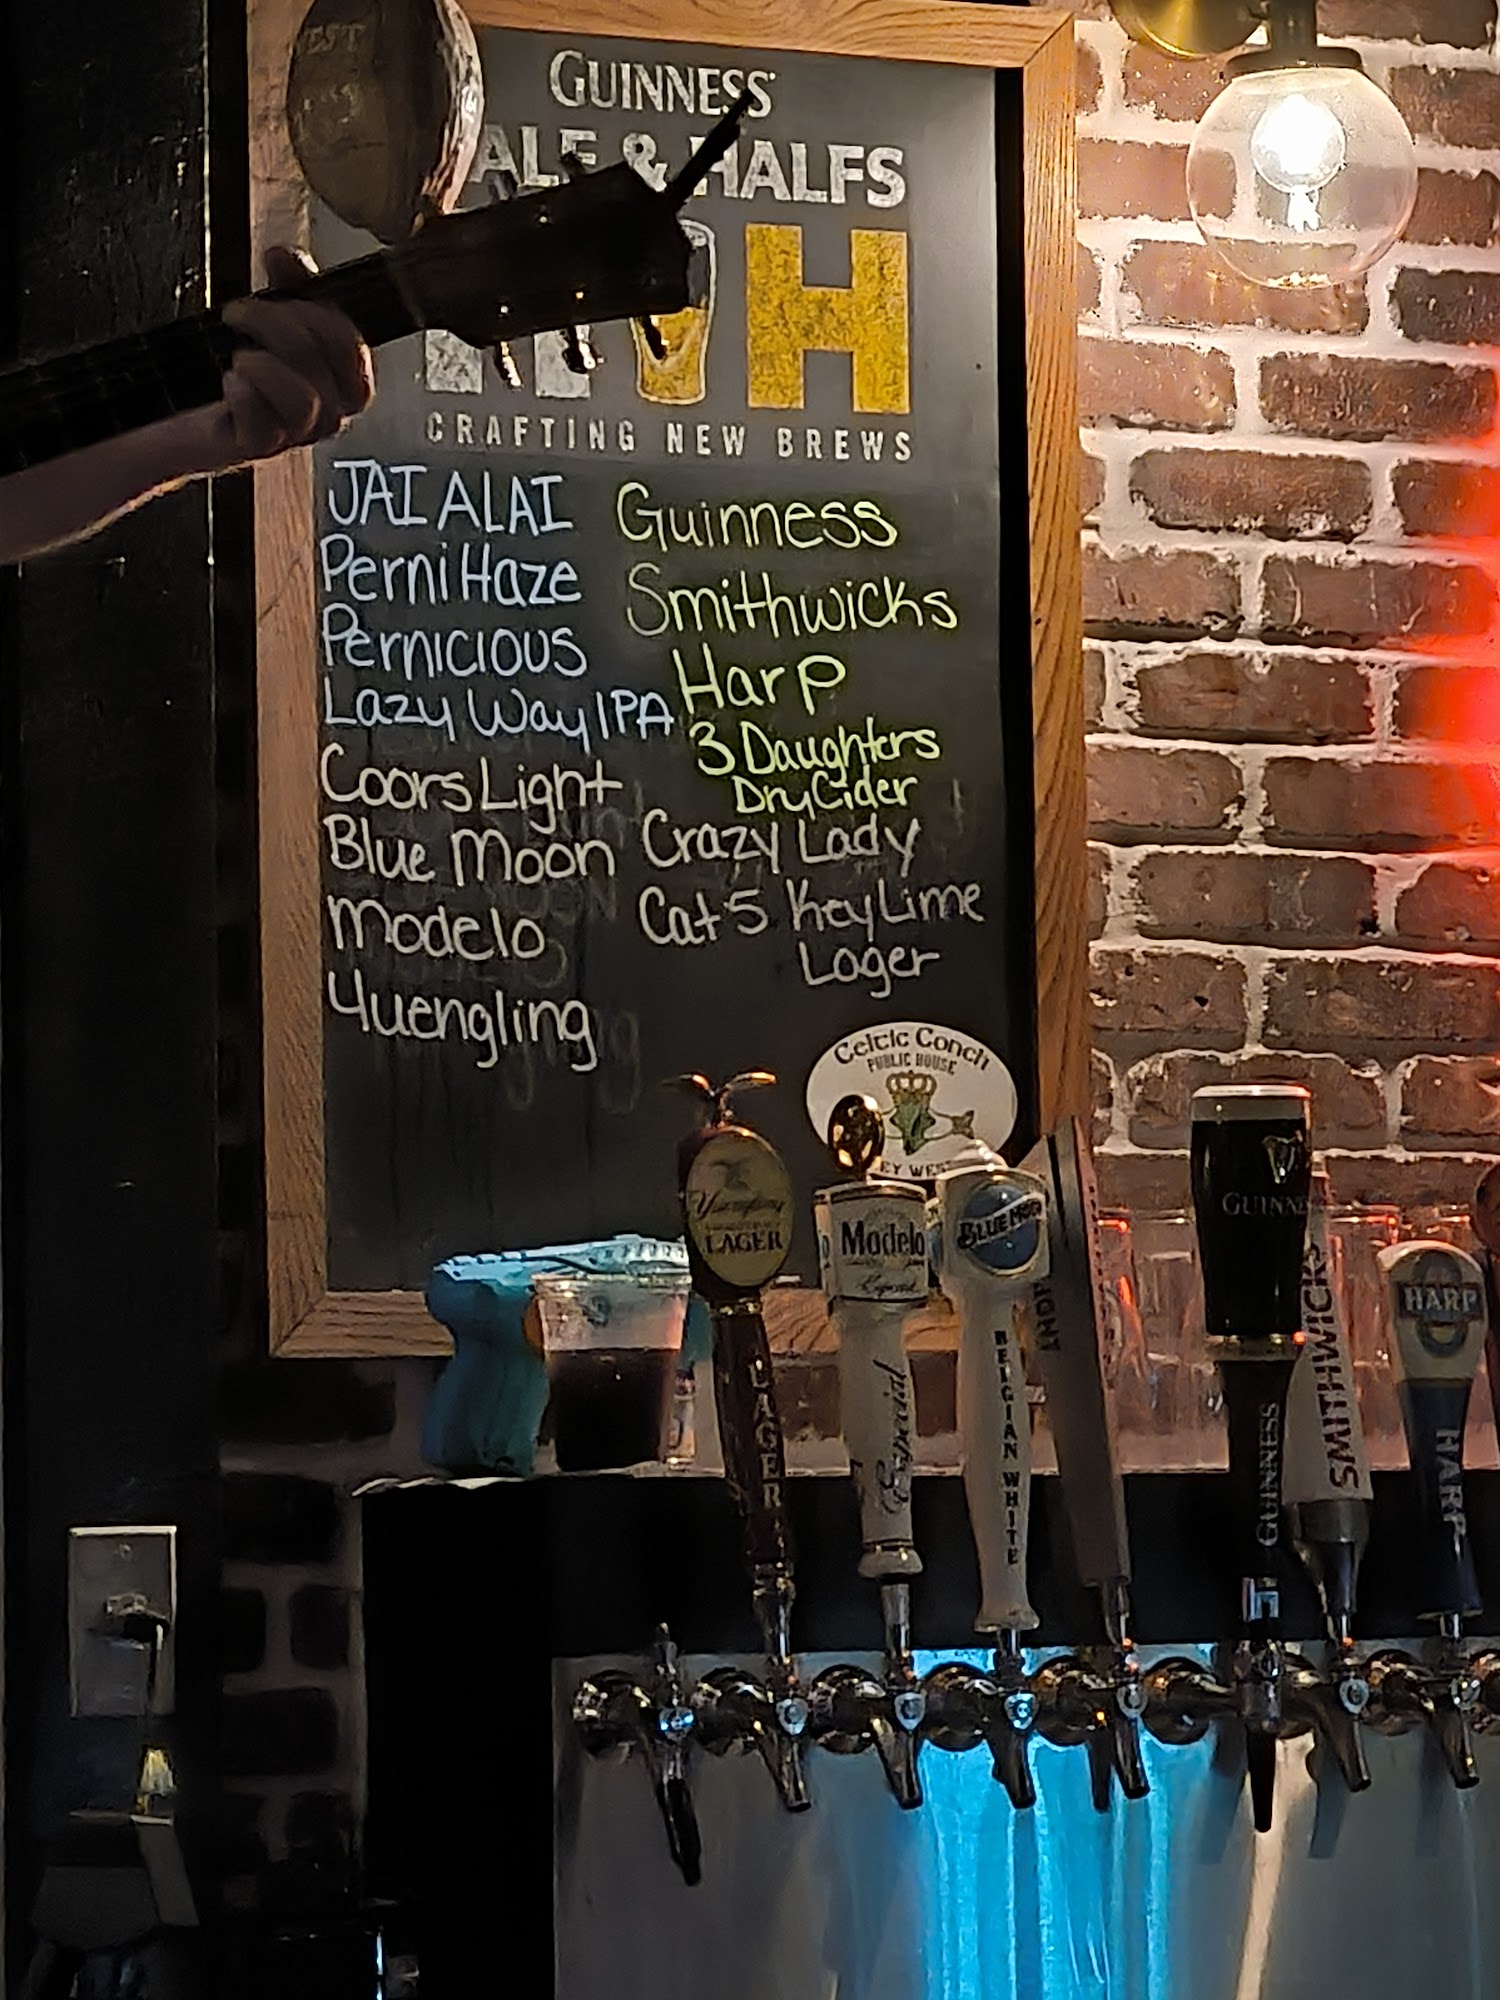 GUINNESS
ALE & HALFS
H
CRAFTING NEW BREWS
JAI ALAI
Perni Haze
Pernicious
Lazy Way IPA
Coors Light
Blue Moon
Modelo
Yuengling
Guinness
Smithwicks
Harp
3 Daughters
Dry Cider
Crazy Lady
Cat 5 Key Lime
Lager
Celtic Conch
PUBLIC HOUSE
EY WES
Yuengling
LAGER
LAGER
Modelo
Especial
Especial
BLUE MOON
BELGIAN WHITE
GUINNES
GUINNESS
SMITHWICKS
HARP
HARP